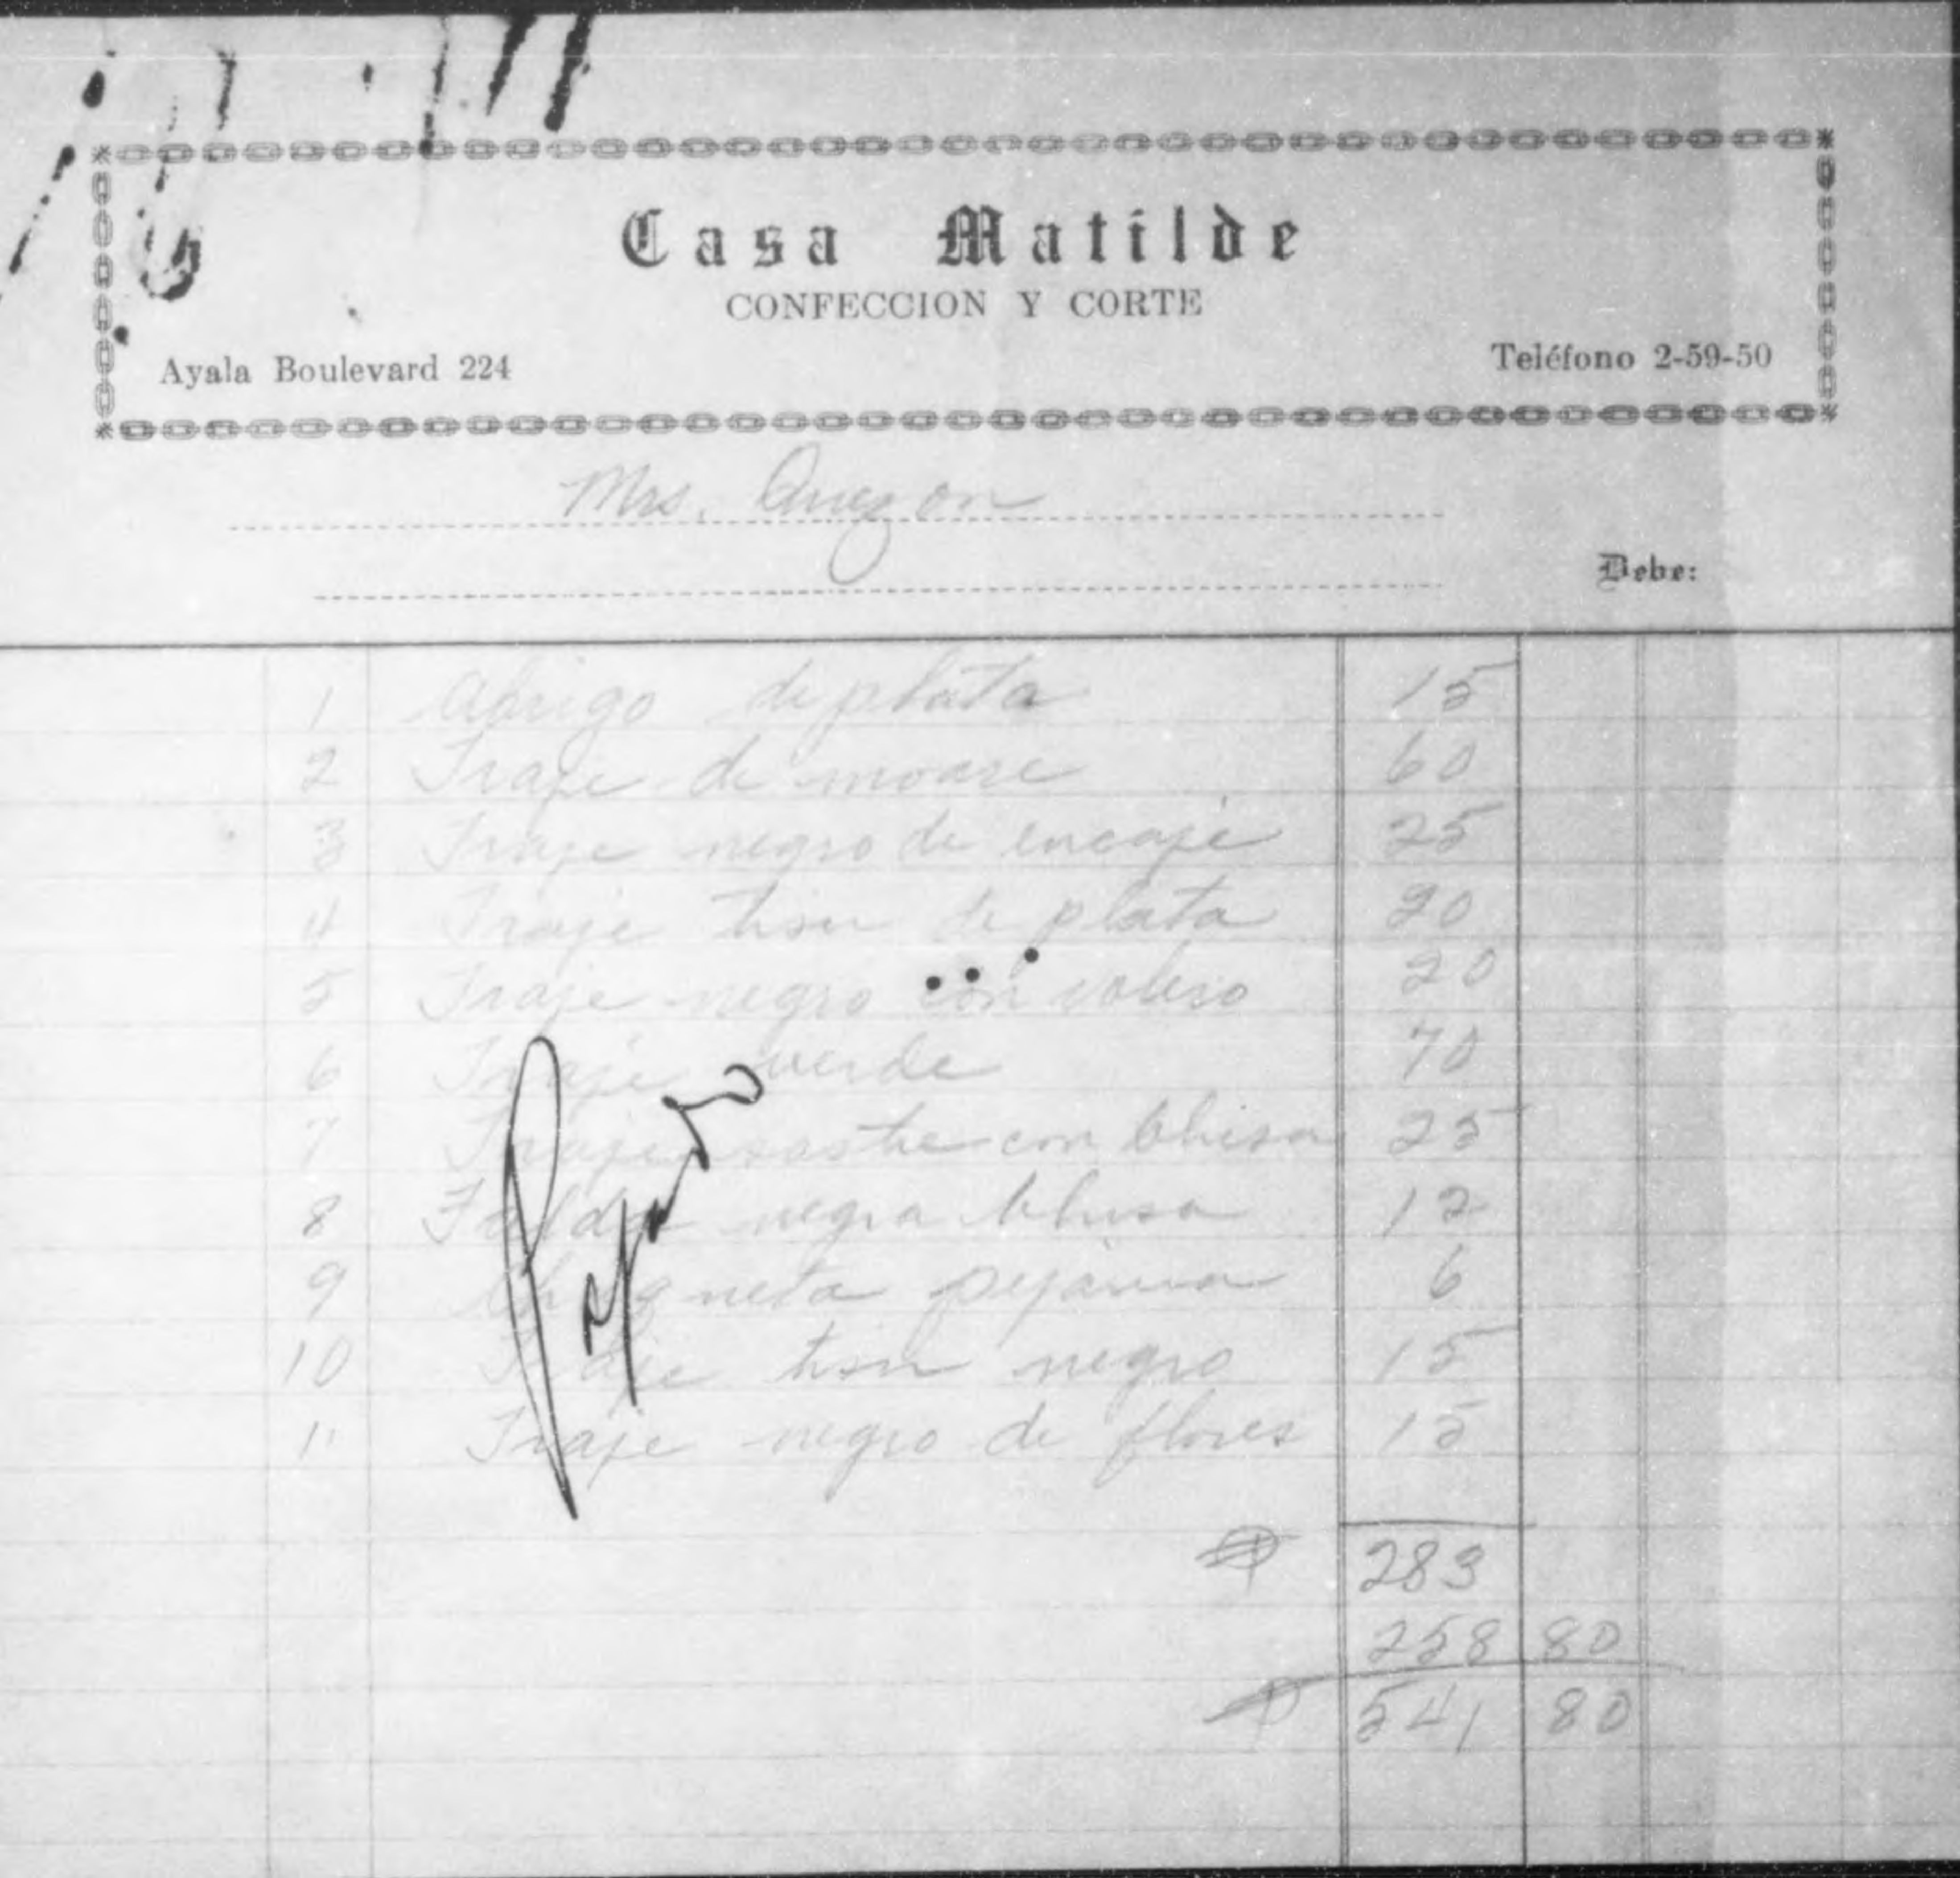 Casa Matilde
CONFECCION Y CORTE
Ayala Boulevard 224 Teléfono 2-59-50
Mrs. Quezon
Debe:
1 Abrigo de plata 15
2 Traje de moare 60
3 Traje negro de encaje 25
4 Traje tisu de plata 20
5 Traje negro con volero 20
6 Traje verde 70
7 Traje sastre con blusa 25
8 Falda negra blusa 12
9 Chaqueta pejama 6
10 Traje tisu negro 15
11 Traje negro de flores 15
₱ 283
258 80
₱ 541 80